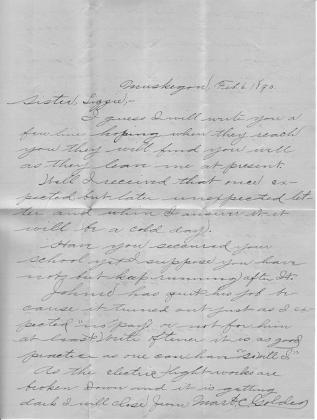 Muskegon, Feb. 6, 1890.
Sister Lizzie,-
I guess I will writ you a
few line hoping when they reach
you they will find you well
as they leave me at present.
Well I received that once ex-
pected but later unexpected let-
ter and when I answer it it
will be a cold day.
Have you secured your
school yet I suppose you have
not but kep running after it.
Johnie has quit his job be
cause it turned out just as I ex-
pected "no pay" or not for him
at least. it is as good
practice as one can
As the electric light works are
broken down and it is getting
dark I will close from